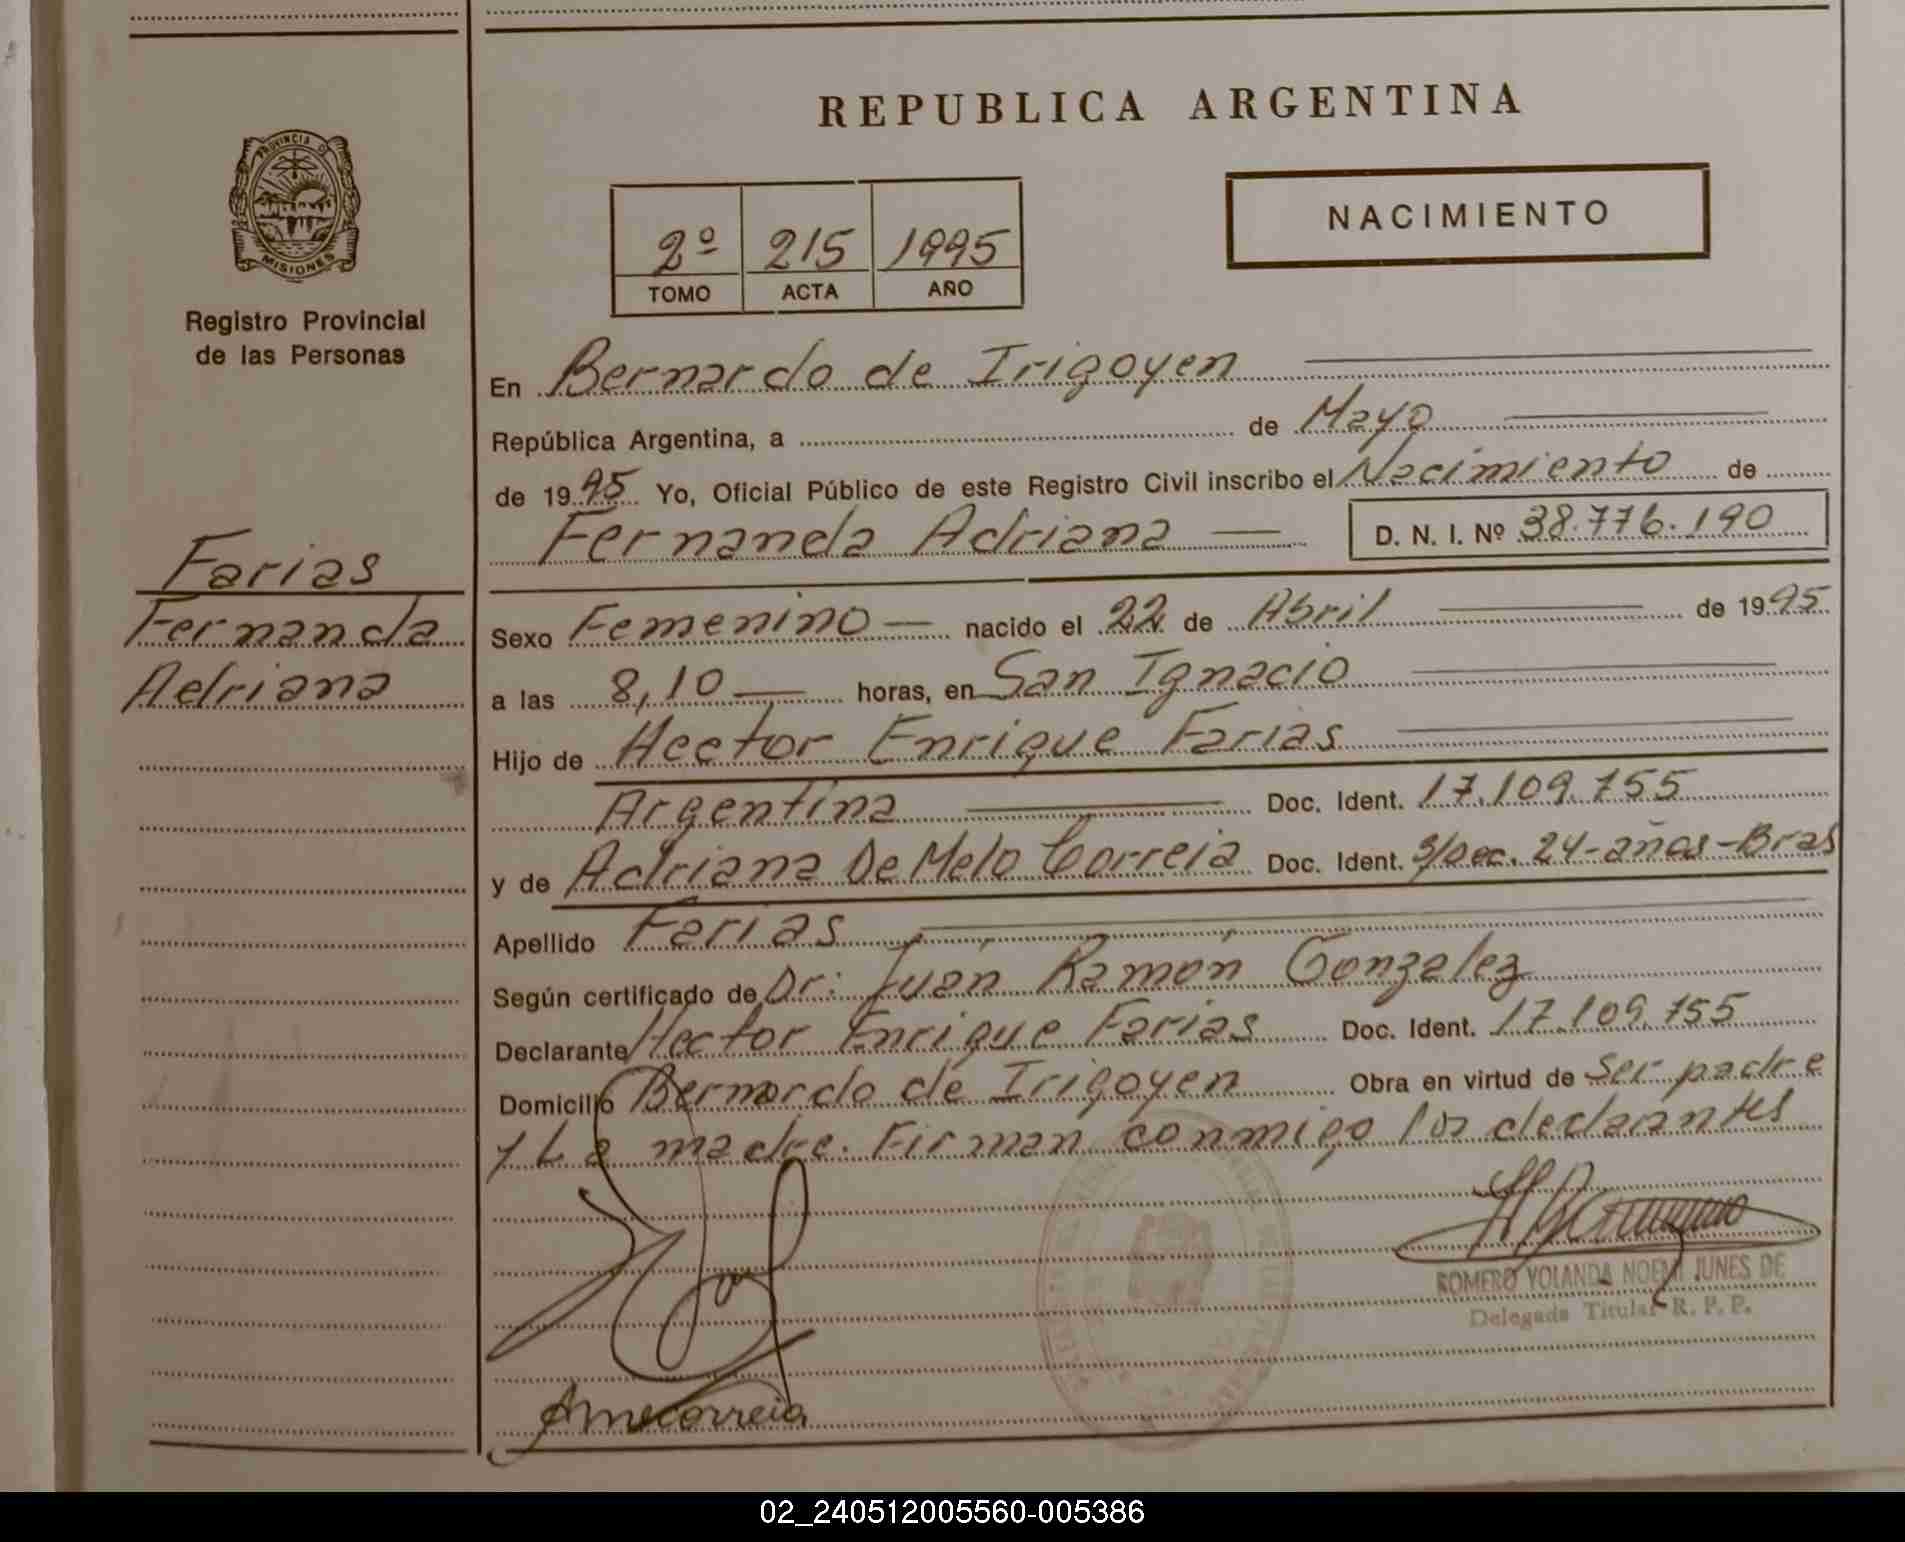 REPUBLICA ARGENTINA
PROVINCIA D
MISIONES
Registro Provincial
de las Personas
Farias
Fernanda
Adriana
2º 215 1995
TOMO ACTA AÑO
NACIMIENTO
En Bernardo de Irigoyen
República Argentina, a de Mayo
de 1995 Yo, Oficial Público de este Registro Civil inscribo el Nacimiento de
Fernanda Adriana — D. N. I. Nº 38.776.190
Sexo Femenino — nacido el 22 de Abril de 1995
a las 8,10 — horas, en San Ignacio
Hijo de Hector Enrique Farias
Argentina Doc. Ident. 17.109.755
y de Adriana De Melo Correia Doc. Ident. S/Doc. 24-años-Bras
Apellido Farias
Según certificado de Dr: Juán Ramón Gonzalez
Declarante Hector Enrique Farias Doc. Ident. 17.109.755
Domicilio Bernardo de Irigoyen Obra en virtud de ser padre
y La madre. Firman conmigo los declarantes
ROMERO YOLANDA NOEMI JUNES DE
Delegada Titular R. P. P.
02_240512005560-005386